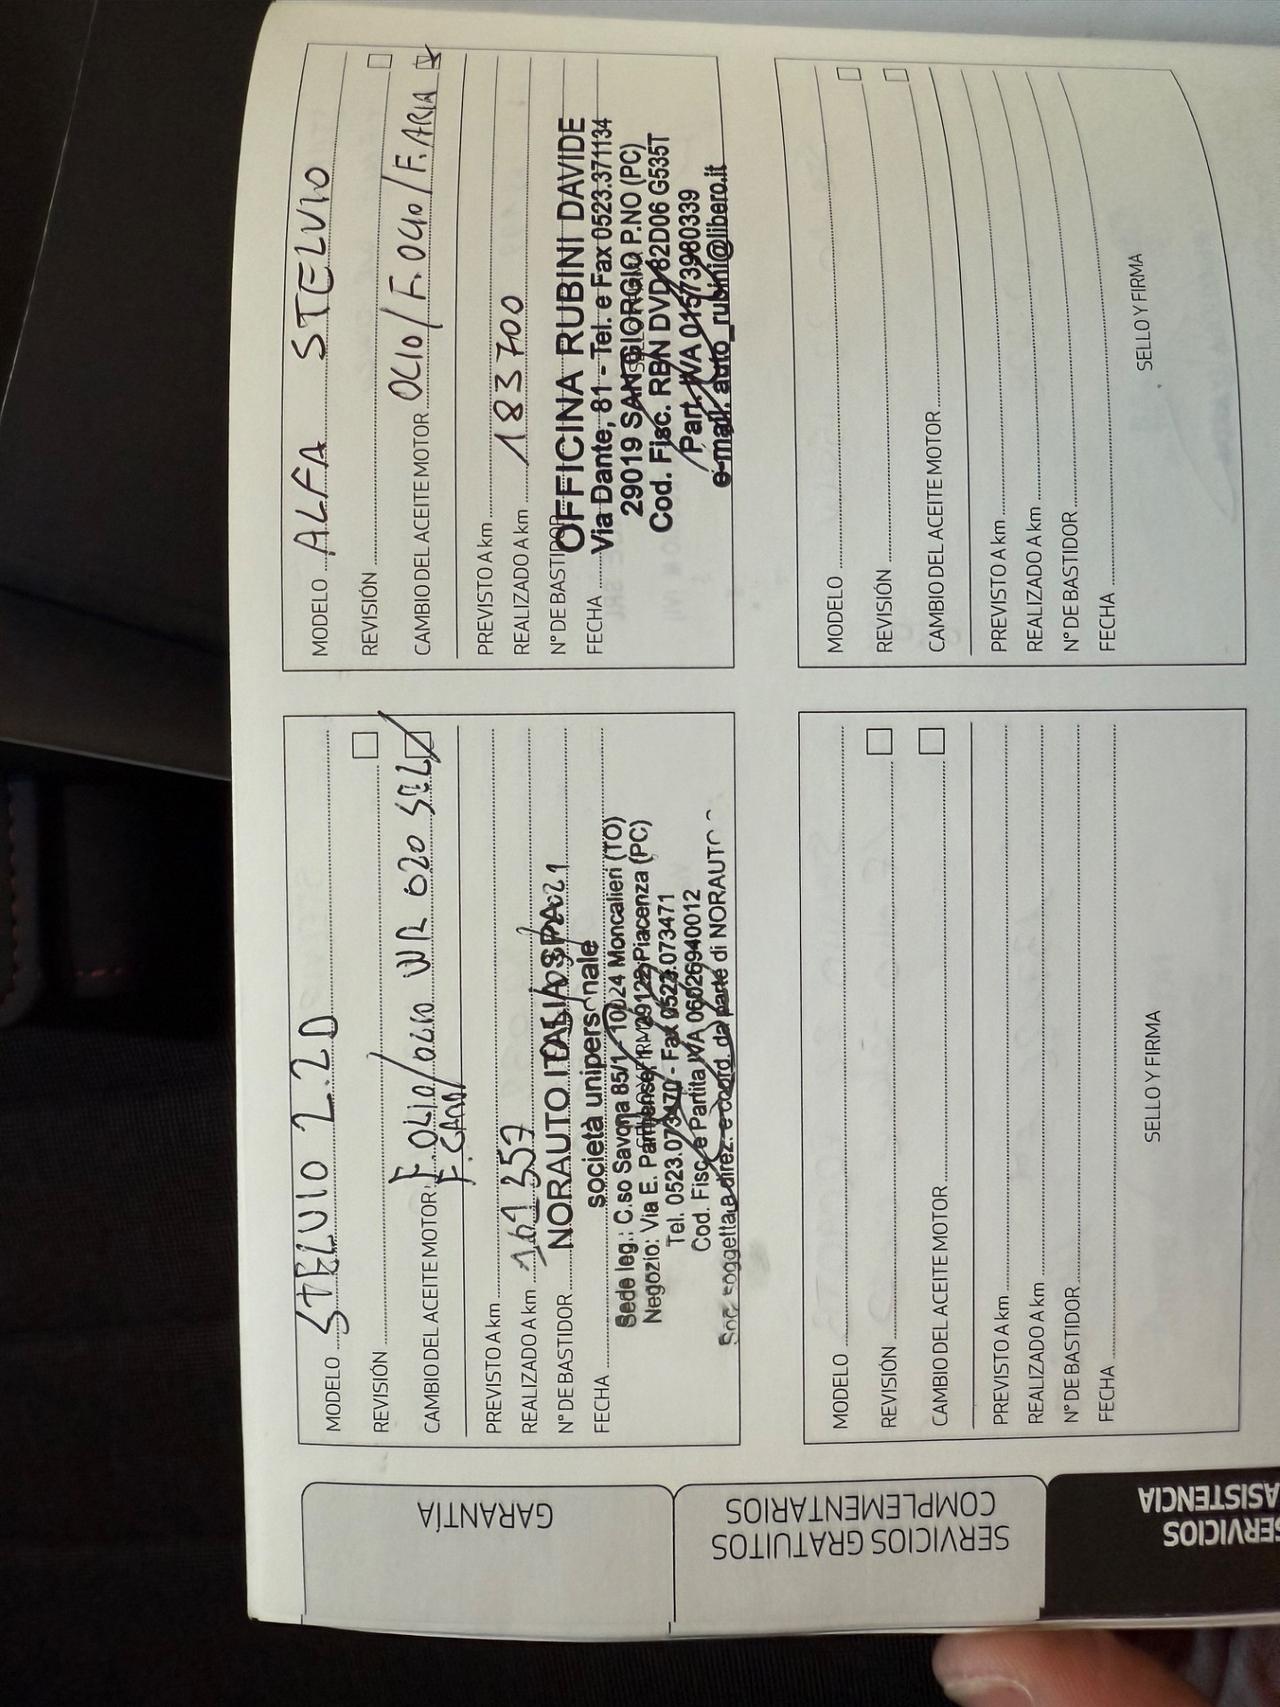 MODELO STELVIO 2.2D
REVISIÓN
CAMBIO DEL ACEITE MOTOR F. OLIO/OLIO WR 020 SEL
F. GAB
PREVISTO A km
REALIZADO A km 161357
N° DE BASTIDOR
NORAUTO ITALIA SPA
FECHA
società unipersonale
Sede leg.: C.so Savona 85/1 - 10024 Moncalieri (TO)
Negozio: Via E. Parmense, 29122 Piacenza (PC)
Tel. 0523.073470 - Fax 0523.073471
Cod. Fisc. e Partita IVA 06026940012
Soc. soggetta a direz. e coord. da parte di NORAUTO
MODELO ALFA STELVIO
REVISIÓN
CAMBIO DEL ACEITE MOTOR OLIO/F.OLIO/F.ARIA
PREVISTO A km
REALIZADO A km 183700
N° DE BASTIDOR
OFFICINA RUBINI DAVIDE
FECHA
Via Dante, 81 - Tel. e Fax 0523.371134
29019 SAN GIORGIO P.NO (PC)
Cod. Fisc. RBN DVD 82D06 G535T
Part. IVA 01573980339
e-mail: auto_rubini@libero.it
MODELO
REVISIÓN
CAMBIO DEL ACEITE MOTOR
PREVISTO A km
REALIZADO A km
N° DE BASTIDOR
FECHA
SELLO Y FIRMA
MODELO
REVISIÓN
CAMBIO DEL ACEITE MOTOR
PREVISTO A km
REALIZADO A km
N° DE BASTIDOR
FECHA
SELLO Y FIRMA
GARANTÍA
SERVICIOS GRATUITOS
COMPLEMENTARIOS
SERVICIOS
ASISTENCIA